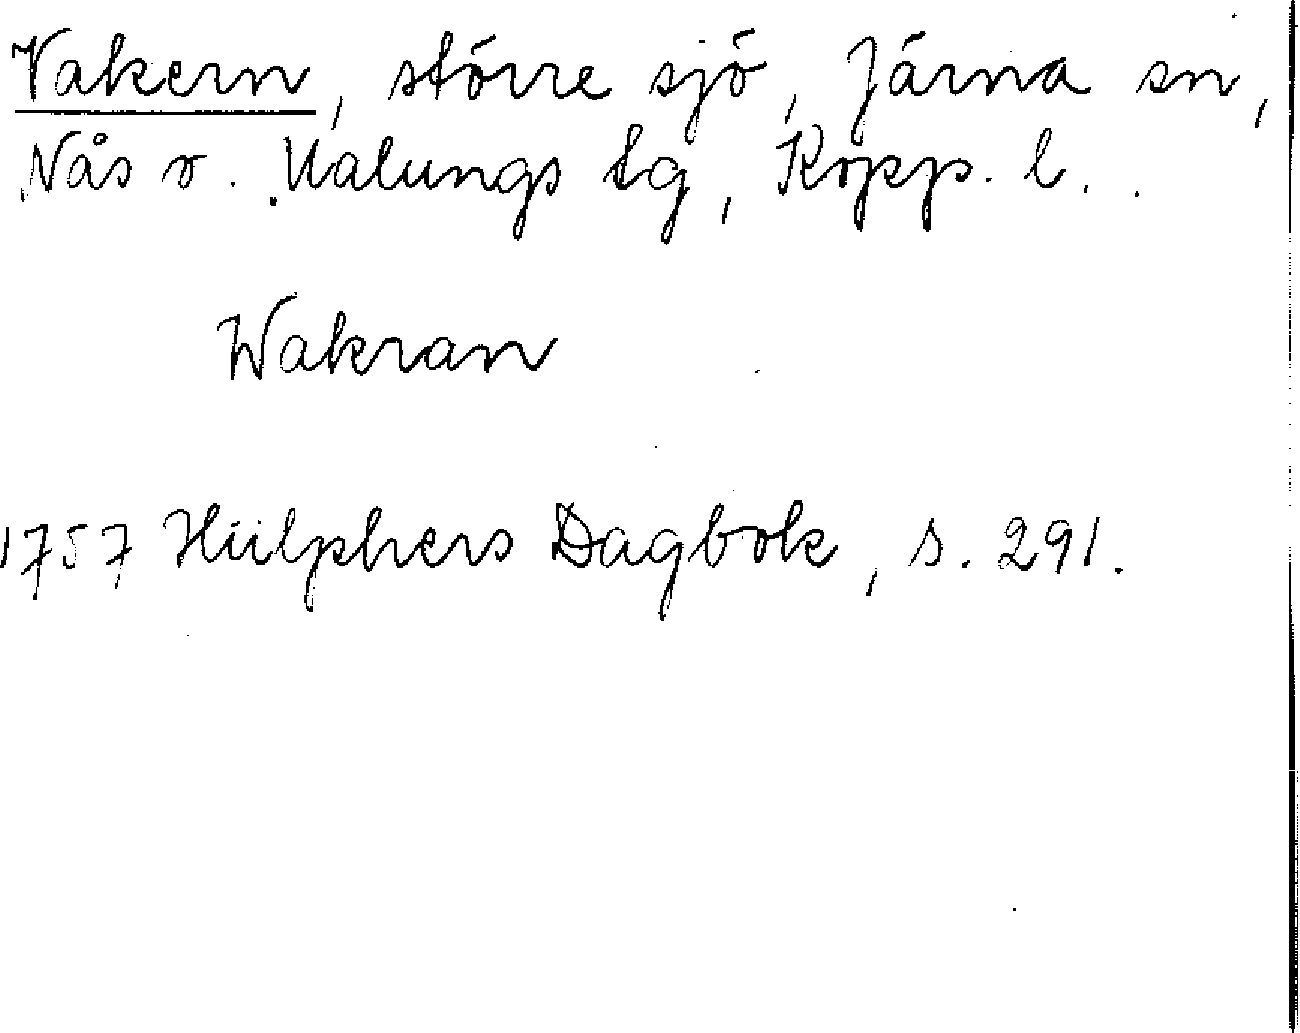 Vakern, större sjö, Järna sn,
Nås o. Malungs tg, Kopp. l.
Wakran
1757 Hülphers Dagbok, s. 291.